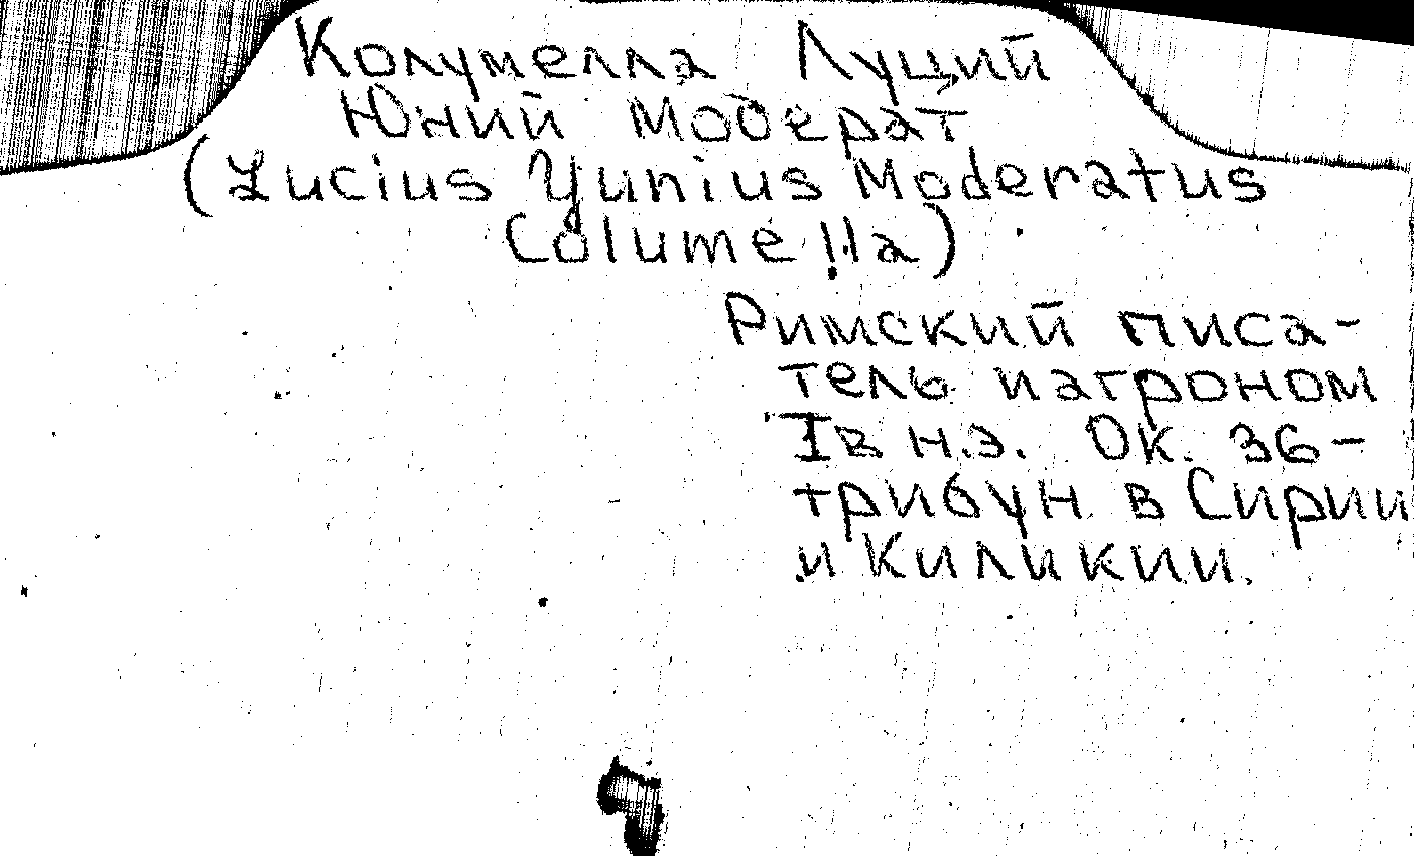 Колумелла Луций
Юний Модерат
(Lucius Yunius Moderatus
Columella)
Римский писа-
тель и агроном
I в н.э. Ок. 36-
трибун в Сирии
и Киликии.